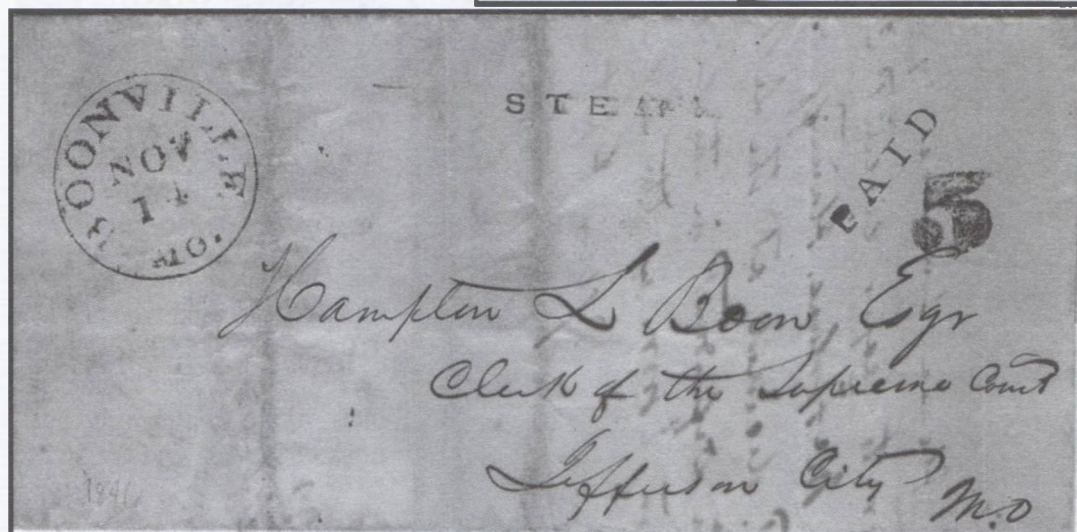 BOONVILLE MO.
NOV
14
STEAM
PAID
5
Hampton L Boon Esqr
Clerk of the Supreme Court
Jefferson City Mo